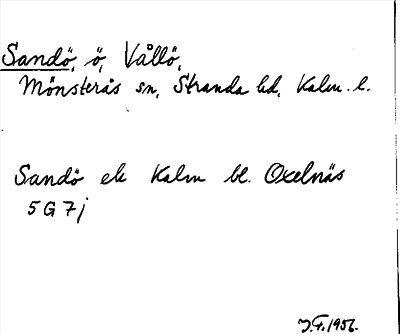 Sandö, ö, Vållö,
Mönsterås sn, Stranda hd, Kalm. l.
Sandö ek Kalm bl. Oxelnäs
5G 7j
J.F. 1956.